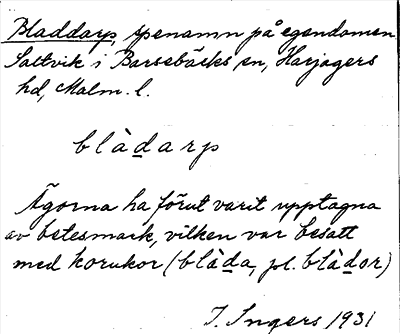 Bladdarp, öpenamn på egendomen
Saltvik i Barsebäcks sn, Harjagers
hd, Malm. l.
blàdarp
Ägorna ha förut varit upptagna
av betesmark, vilken var besatt
med korukor (blàda, pl. blàdor)
I. Ingers 1931